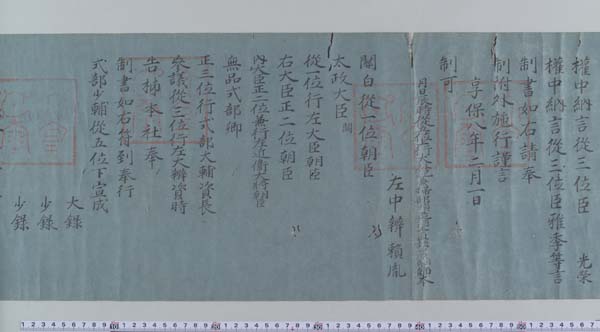 權中納言從三位臣 光榮
權中納言從三位臣雅季等言
制書如右請奉
制附外施行謹言
享保八年二月一日
制可
左中辨賴胤
關白從一位朝臣
太政大臣 闕
從一位行左大臣朝臣
右大臣正二位朝臣
內大臣正二位兼行左近衛大將朝臣
無品式部卿
正三位行式部大輔資長
參議從三位行左大辨資時
告柿本社奉
制書如右符到奉行
式部少輔從五位下宣成
大錄
少錄
少錄